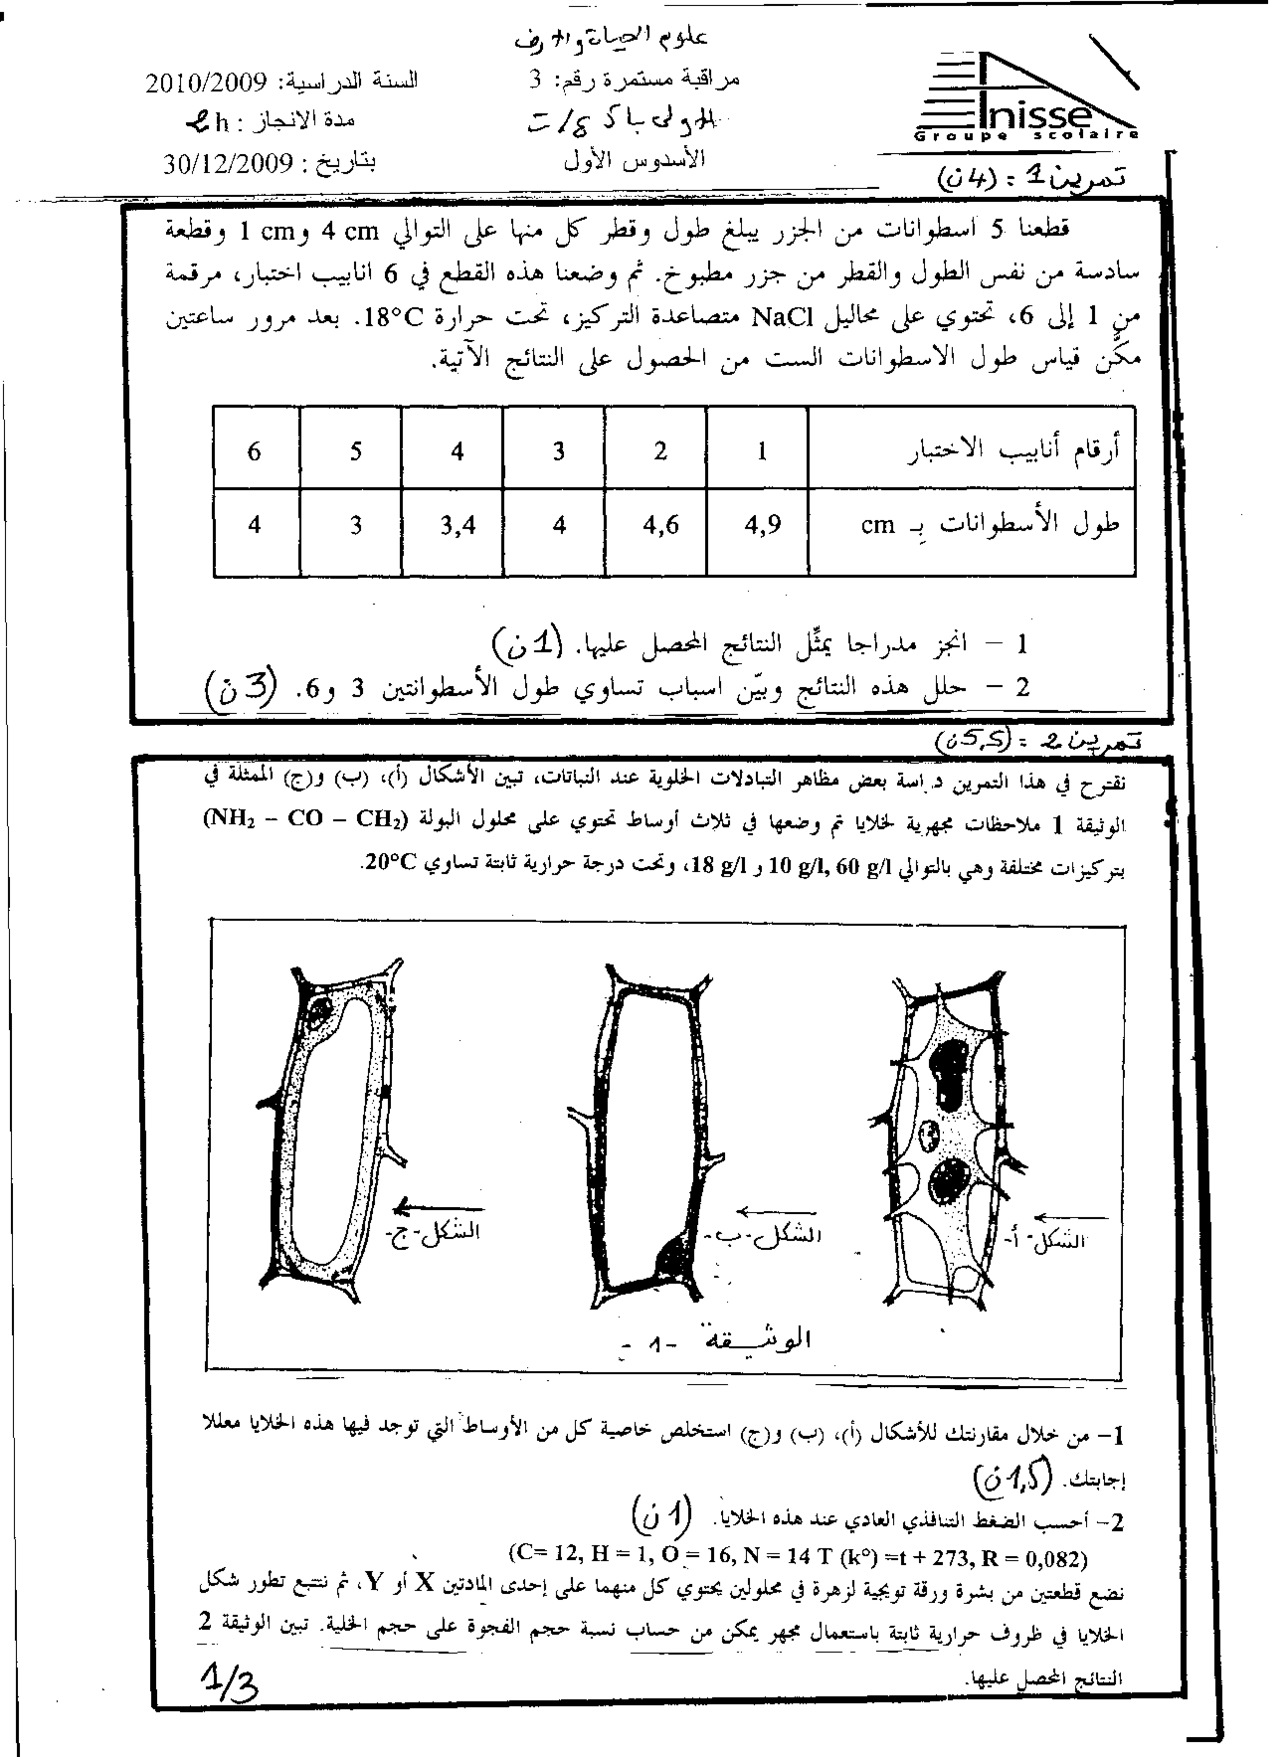 علوم الحياة والارض
مراقبة مستمرة رقم: 3
السنة الدراسية: 2010/2009
الاولى باك ع/ت
مدة الانجاز : 2h
الأسدوس الأول
بتاريخ : 30/12/2009
Inisse
Groupe scolaire
تمرين 1 : (4ن)
قطعنا 5 اسطوانات من الجزر يبلغ طول وقطر كل منها على التوالي 4 cm و1 cm وقطعة
سادسة من نفس الطول والقطر من جزر مطبوخ. ثم وضعنا هذه القطع في 6 انابيب اختبار، مرقمة
من 1 إلى 6، تحتوي على محاليل NaCl متصاعدة التركيز، تحت حرارة 18°C. بعد مرور ساعتين
مكَّن قياس طول الاسطوانات الست من الحصول على النتائج الآتية.
أرقام أنابيب الاختبار 1 2 3 4 5 6
طول الأسطوانات بـ cm 4,9 4,6 4 3,4 3 4
1 – انجز مدراجا يمثِّل النتائج المحصل عليها. (1ن)
2 – حلل هذه النتائج وبيّن اسباب تساوي طول الأسطوانتين 3 و6. (3ن)
تمرين 2 : (5,5ن)
نقترح في هذا التمرين دراسة بعض مظاهر التبادلات الخلوية عند النباتات، تبين الأشكال (أ)، (ب) و(ج) الممثلة في
الوثيقة 1 ملاحظات مجهرية لخلايا تم وضعها في ثلاث أوساط تحتوي على محلول البولة (NH₂ – CO – CH₂)
بتركيزات مختلفة وهي بالتوالي 10 g/l, 60 g/l و 18 g/l، وتحت درجة حرارية ثابتة تساوي 20°C.
الشكل -أ-
الشكل -ب-
الشكل -ج-
الوثيقة -1-
1– من خلال مقارنتك للأشكال (أ)، (ب) و(ج) استخلص خاصية كل من الأوساط التي توجد فيها هذه الخلايا معللا
إجابتك. (1,5ن)
2– أحسب الضغط التنافذي العادي عند هذه الخلايا. (1ن)
(C= 12, H = 1, O = 16, N = 14 T (k°) =t + 273, R = 0,082)
نضع قطعتين من بشرة ورقة تويجية لزهرة في محلولين يحتوي كل منهما على إحدى المادتين X أو Y، ثم نتتبع تطور شكل
الخلايا في ظروف حرارية ثابتة باستعمال مجهر يمكن من حساب نسبة حجم الفجوة على حجم الخلية. تبين الوثيقة 2
النتائج المحصل عليها.
1/3